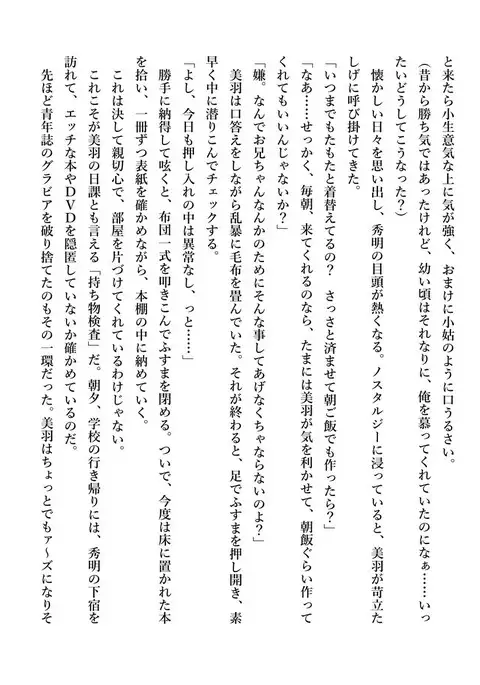 と来たら小生意気な上に気が強く、おまけに小姑のように口うるさい。
（昔から勝ち気ではあったけれど、幼い頃はそれなりに、俺を慕ってくれていたのになぁ……いっ
たいどうしてこうなった？）
懐かしい日々を思い出し、秀明の目頭が熱くなる。ノスタルジーに浸っていると、美羽が苛立た
しげに呼び掛けてきた。
「いつまでもたもたと着替えてるの？　さっさと済ませて朝ご飯でも作ったら？」
「なあ……せっかく、毎朝、来てくれるのなら、たまには美羽が気を利かせて、朝飯ぐらい作って
くれてもいいんじゃないか？」
「嫌。なんでお兄ちゃんなんかのためにそんな事してあげなくちゃならないのよ？」
美羽は口答えをしながら乱暴に毛布を畳んでいた。それが終わると、足でふすまを押し開き、素
早く中に潜りこんでチェックする。
「よし、今日も押し入れの中は異常なし、っと……」
勝手に納得して呟くと、布団一式を叩きこんでふすまを閉める。ついで、今度は床に置かれた本
を拾い、一冊ずつ表紙を確かめながら、本棚の中に納めていく。
これは決して親切心で、部屋を片づけてくれているわけじゃない。
これこそが美羽の日課とも言える「持ち物検査」だ。朝夕、学校の行き帰りには、秀明の下宿を
訪れて、エッチな本やＤＶＤを隠匿していないか確かめているのだ。
先ほど青年誌のグラビアを破り捨てたのもその一環だった。美羽はちょっとでもァ～ズになりそ